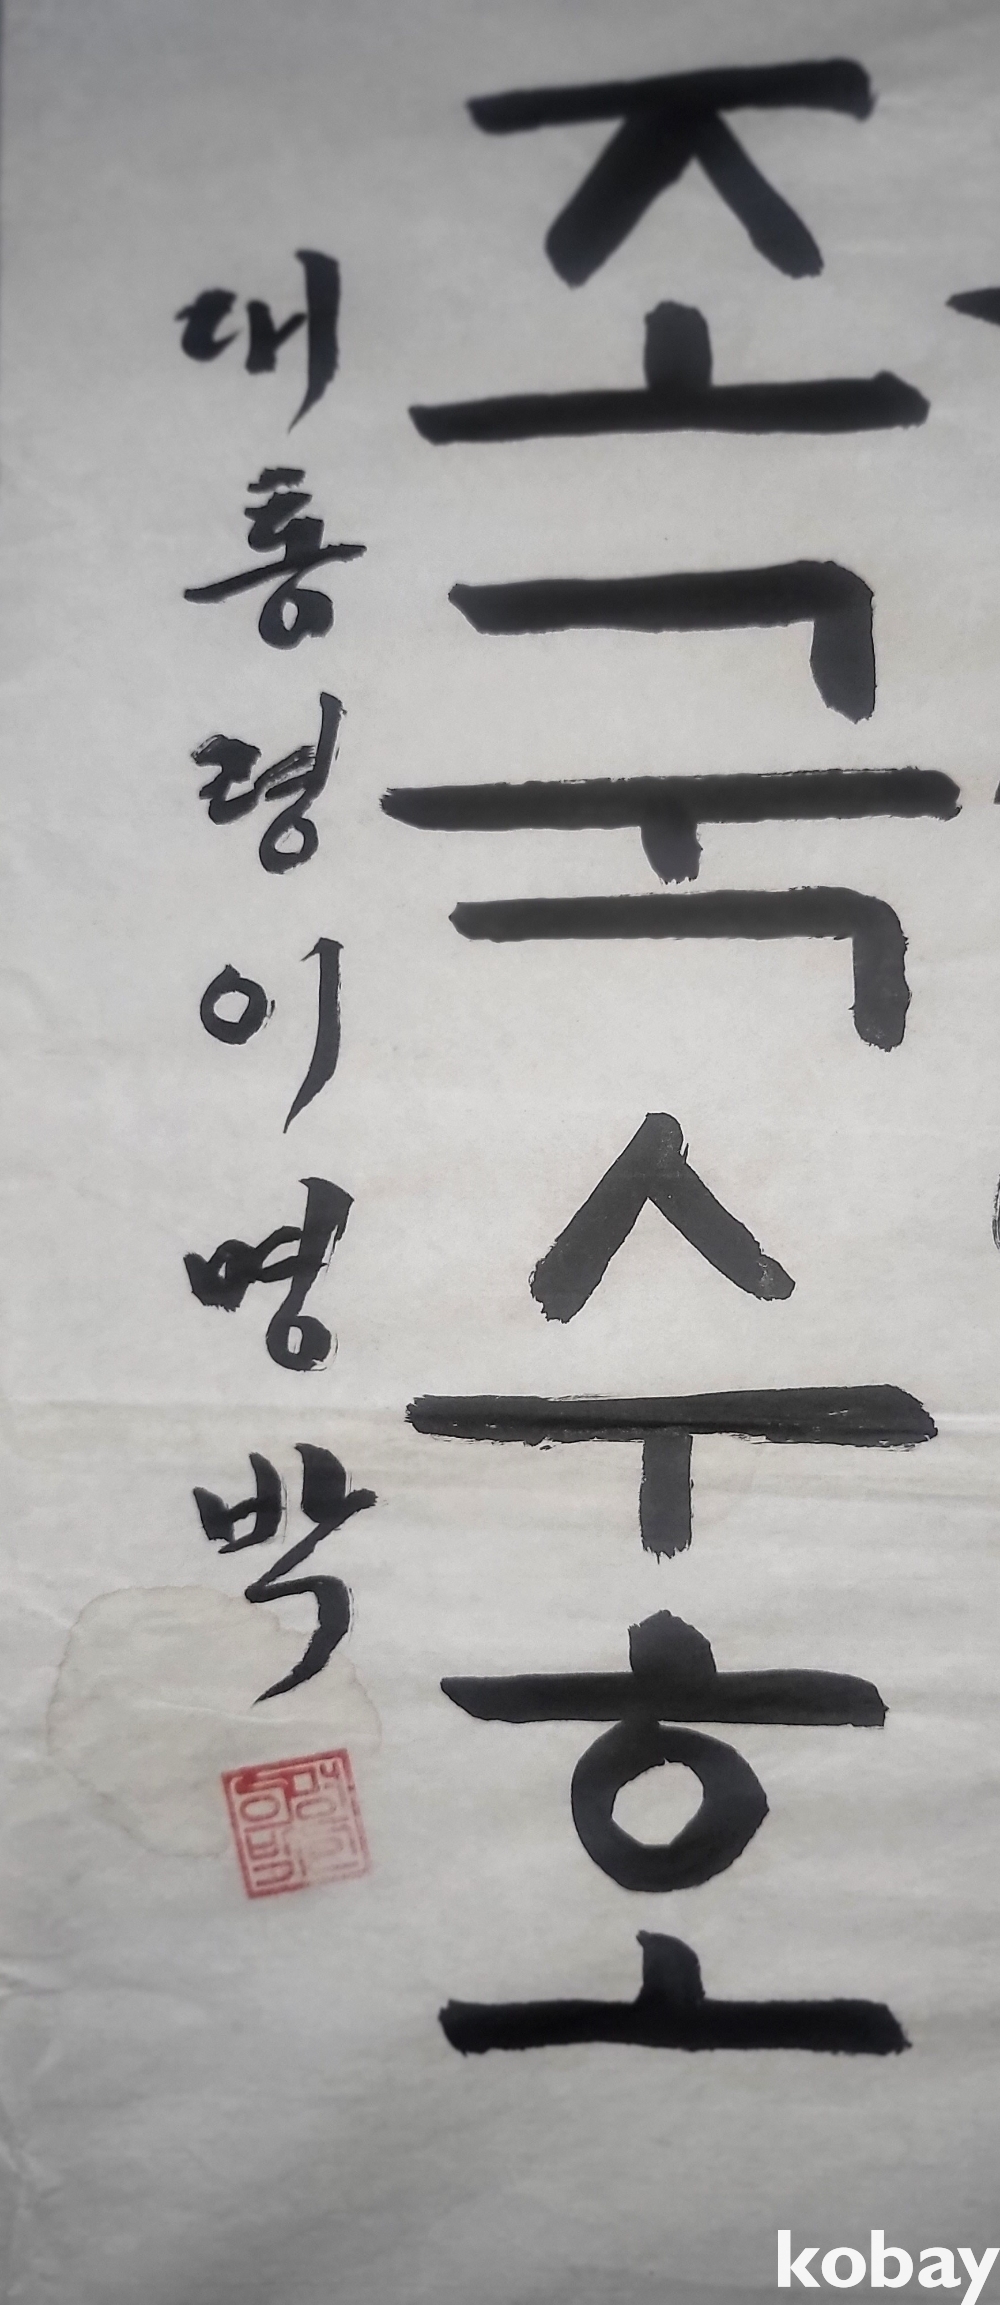 조국수호
대통령이명박
kobay